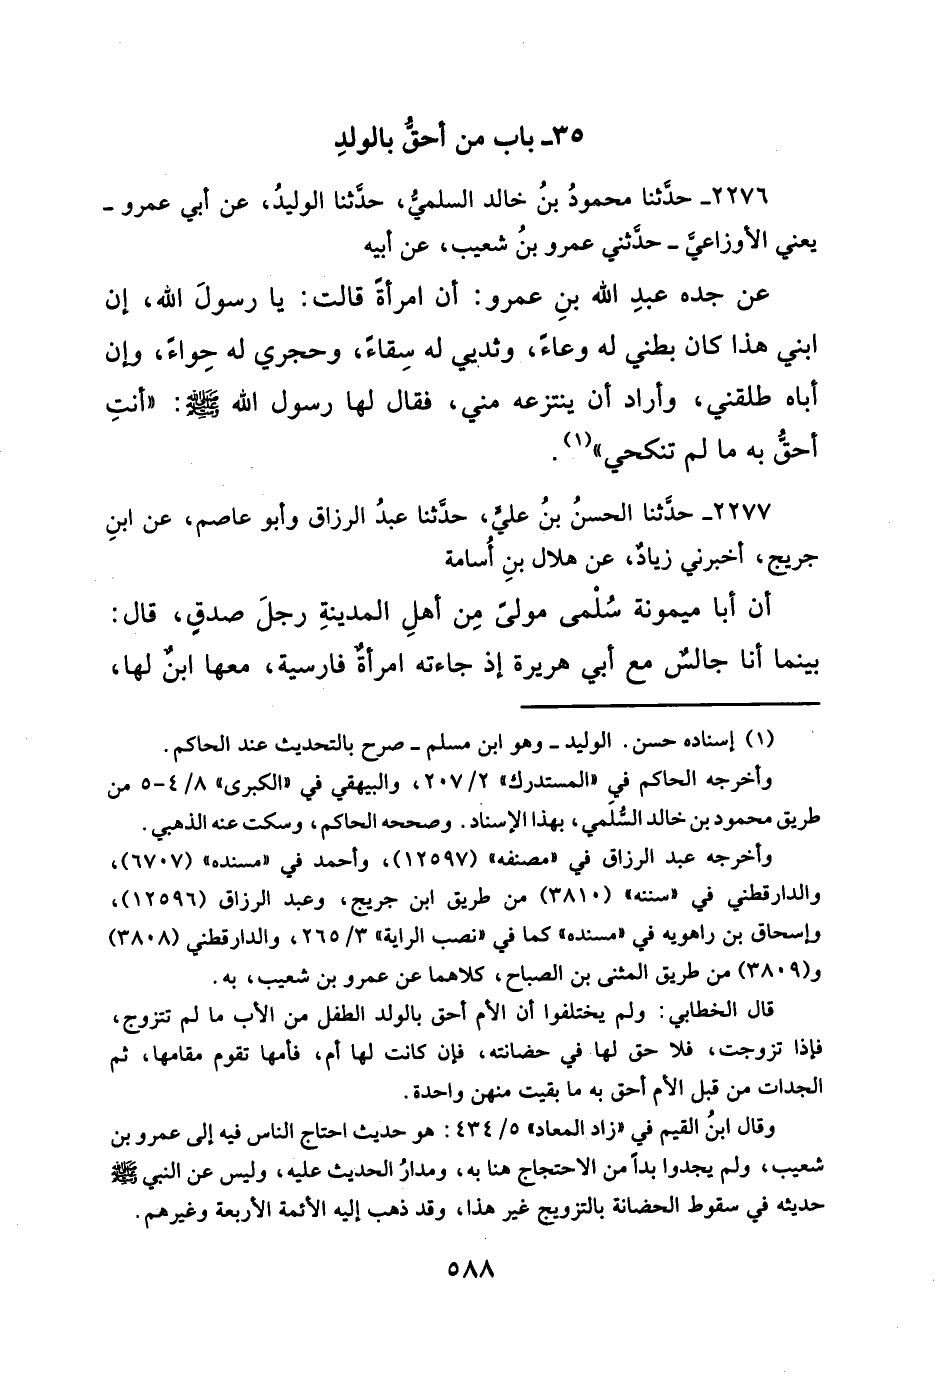 ٣٥ـ باب من أحقُّ بالولدِ
٢٢٧٦ـ حدَّثنا محمودُ بنُ خالد السلميُّ، حدَّثنا الوليدُ، عن أبي عمرو ـ
يعني الأوزاعيَّ ـ حدَّثني عمرو بنُ شعيب، عن أبيه
عن جده عبدِ الله بنِ عمرو: أن امرأةً قالت: يا رسولَ الله، إن
ابني هذا كان بطني له وعاءً، وثديي له سِقاءً، وحجري له حِواءً، وإن
أباه طلقني، وأراد أن ينتزعه مني، فقال لها رسول الله ﷺ: «أنتِ
أحقُّ به ما لم تنكحي»(١).
٢٢٧٧ـ حدَّثنا الحسنُ بنُ عليٍّ، حدَّثنا عبدُ الرزاق وأبو عاصم، عن ابنِ
جريج، أخبرني زيادٌ، عن هلال بنِ أُسامة
أن أبا ميمونة سُلْمى مولىً مِن أهلِ المدينةِ رجلَ صدقٍ، قال:
بينما أنا جالسٌ مع أبي هريرة إذ جاءته امرأةٌ فارسية، معها ابنٌ لها،
(١) إسناده حسن. الوليد ـ وهو ابن مسلم ـ صرح بالتحديث عند الحاكم.
وأخرجه الحاكم في «المستدرك» ٢/ ٢٠٧، والبيهقي في «الكبرى» ٨/ ٤-٥ من
طريق محمود بن خالد السُّلَمي، بهذا الإسناد. وصححه الحاكم، وسكت عنه الذهبي.
وأخرجه عبد الرزاق في «مصنفه» (١٢٥٩٧)، وأحمد في «مسنده» (٦٧٠٧)،
والدارقطني في «سننه» (٣٨١٠) من طريق ابن جريج، وعبد الرزاق (١٢٥٩٦)،
وإسحاق بن راهويه في «مسنده» كما في «نصب الراية» ٣/ ٢٦٥، والدارقطني (٣٨٠٨)
و(٣٨٠٩) من طريق المثنى بن الصباح، كلاهما عن عمرو بن شعيب، به.
قال الخطابي: ولم يختلفوا أن الأم أحق بالولد الطفل من الأب ما لم تتزوج،
فإذا تزوجت، فلا حق لها في حضانته، فإن كانت لها أم، فأمها تقوم مقامها، ثم
الجدات من قبل الأم أحق به ما بقيت منهن واحدة.
وقال ابنُ القيم في «زاد المعاد» ٥/ ٤٣٤: هو حديث احتاج الناس فيه إلى عمرو بن
شعيب، ولم يجدوا بداً من الاحتجاج هنا به، ومدارُ الحديث عليه، وليس عن النبي ﷺ
حديثه في سقوط الحضانة بالتزويج غير هذا، وقد ذهب إليه الأئمة الأربعة وغيرهم.
٥٨٨